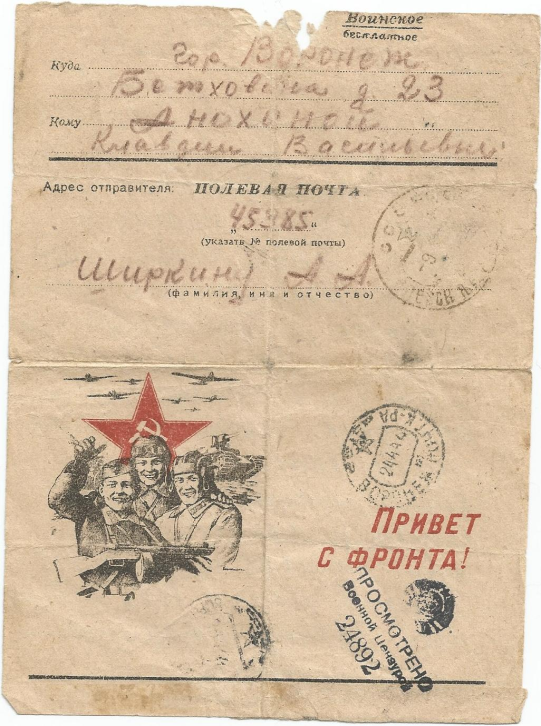 Воинское
бесплатное
Куда гор. Воронеж
Бетховена д. 23
Кому Анохиной
Клавдии Васильевне
Адрес отправителя: ПОЛЕВАЯ ПОЧТА
„45985“
(указать № полевой почты)
Ширкину А А
(фамилия, имя и отчество)
ПРИВЕТ
С ФРОНТА!
ПРОСМОТРЕНО
Военной Цензурой
24892